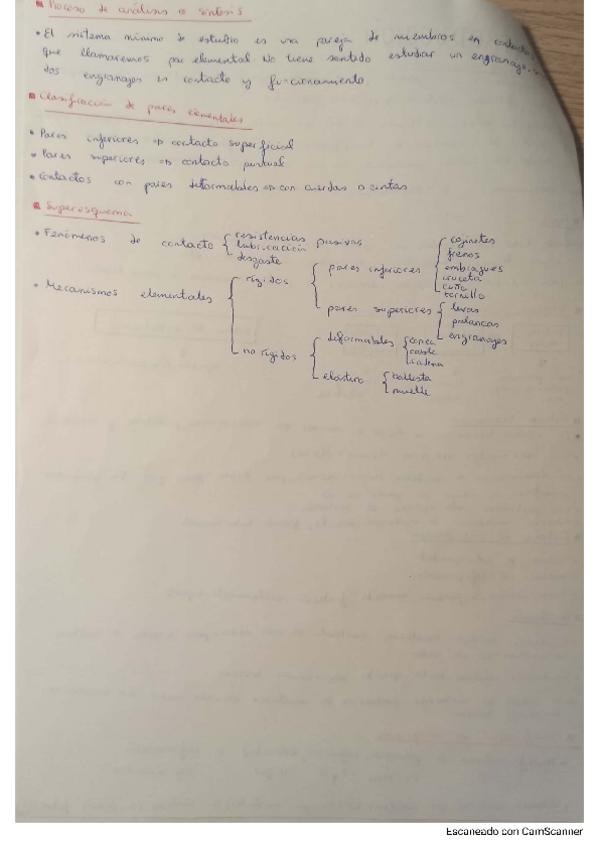 Proceso de análisis o síntesis
• El sistema mínimo de estudio es una pareja de miembros en contacto,
que llamaremos par elemental. No tiene sentido estudiar un engranaje,
dos engranajes en contacto y funcionamiento.
Clasificación de pares elementales
• Pares inferiores ⇒ contacto superficial
• Pares superiores ⇒ contacto puntual
• Contactos con pares deformables ⇒ con cuerdas o cintas
Superesquema
• Fenómenos de contacto { resistencias pasivas
lubricación
desgaste
• Mecanismos elementales
{ rígidos
{ pares inferiores
{ cojinetes
frenos
embragues
cruceta
cuña
tornillo
pares superiores
{ levas
palancas
engranajes
no rígidos
{ deformables
{ correa
cable
cadena
elástico
{ ballesta
muelle
Escaneado con CamScanner